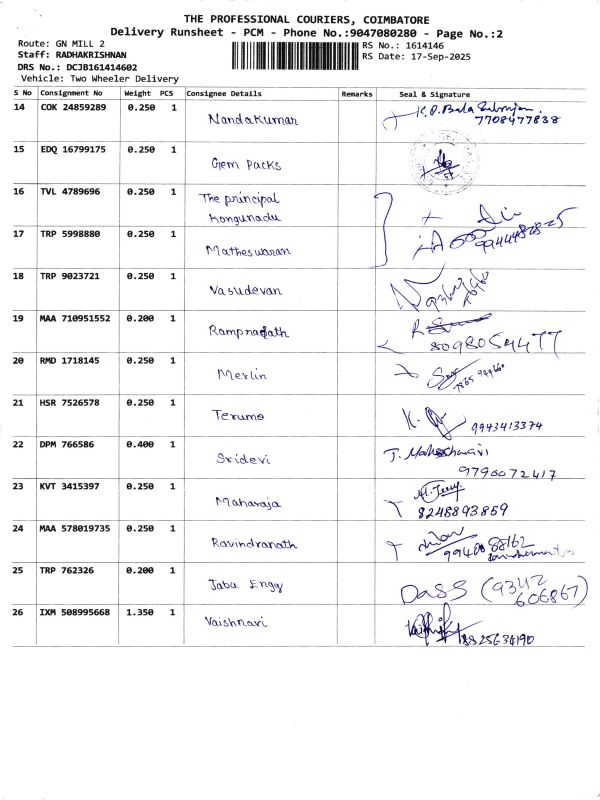 THE PROFESSIONAL COURIERS, COIMBATORE
Delivery Runsheet - PCM - Phone No.:9047080280 - Page No.:2
Route: GN MILL 2
RS No.: 1614146
Staff: RADHAKRISHNAN
RS Date: 17-Sep-2025
DRS No.: DCJB161414602
Vehicle: Two Wheeler Delivery
S No Consignment No Weight PCS Consignee Details Remarks Seal & Signature
14 COK 24859289 0.250 1 Nandakumar
7708477838
15 EDQ 16799175 0.250 1 Gem Packs
16 TVL 4789696 0.250 1 The principal
Kongunadu
17 TRP 5998880 0.250 1 Matheswaran
18 TRP 9023721 0.250 1 Vasudevan
19 MAA 710951552 0.200 1
8098054477
20 RMD 1718145 0.250 1 Merlin
21 HSR 7526578 0.250 1 Terumo
9943413374
22 DPM 766586 0.400 1 Sridevi
9790072417
23 KVT 3415397 0.250 1 Maharaja
8248893859
24 MAA 578019735 0.250 1 Ravindranath
25 TRP 762326 0.200 1 Jaba Engg DaSS (9342
606867)
26 IXM 508995668 1.350 1 Vaishnavi
8825634190